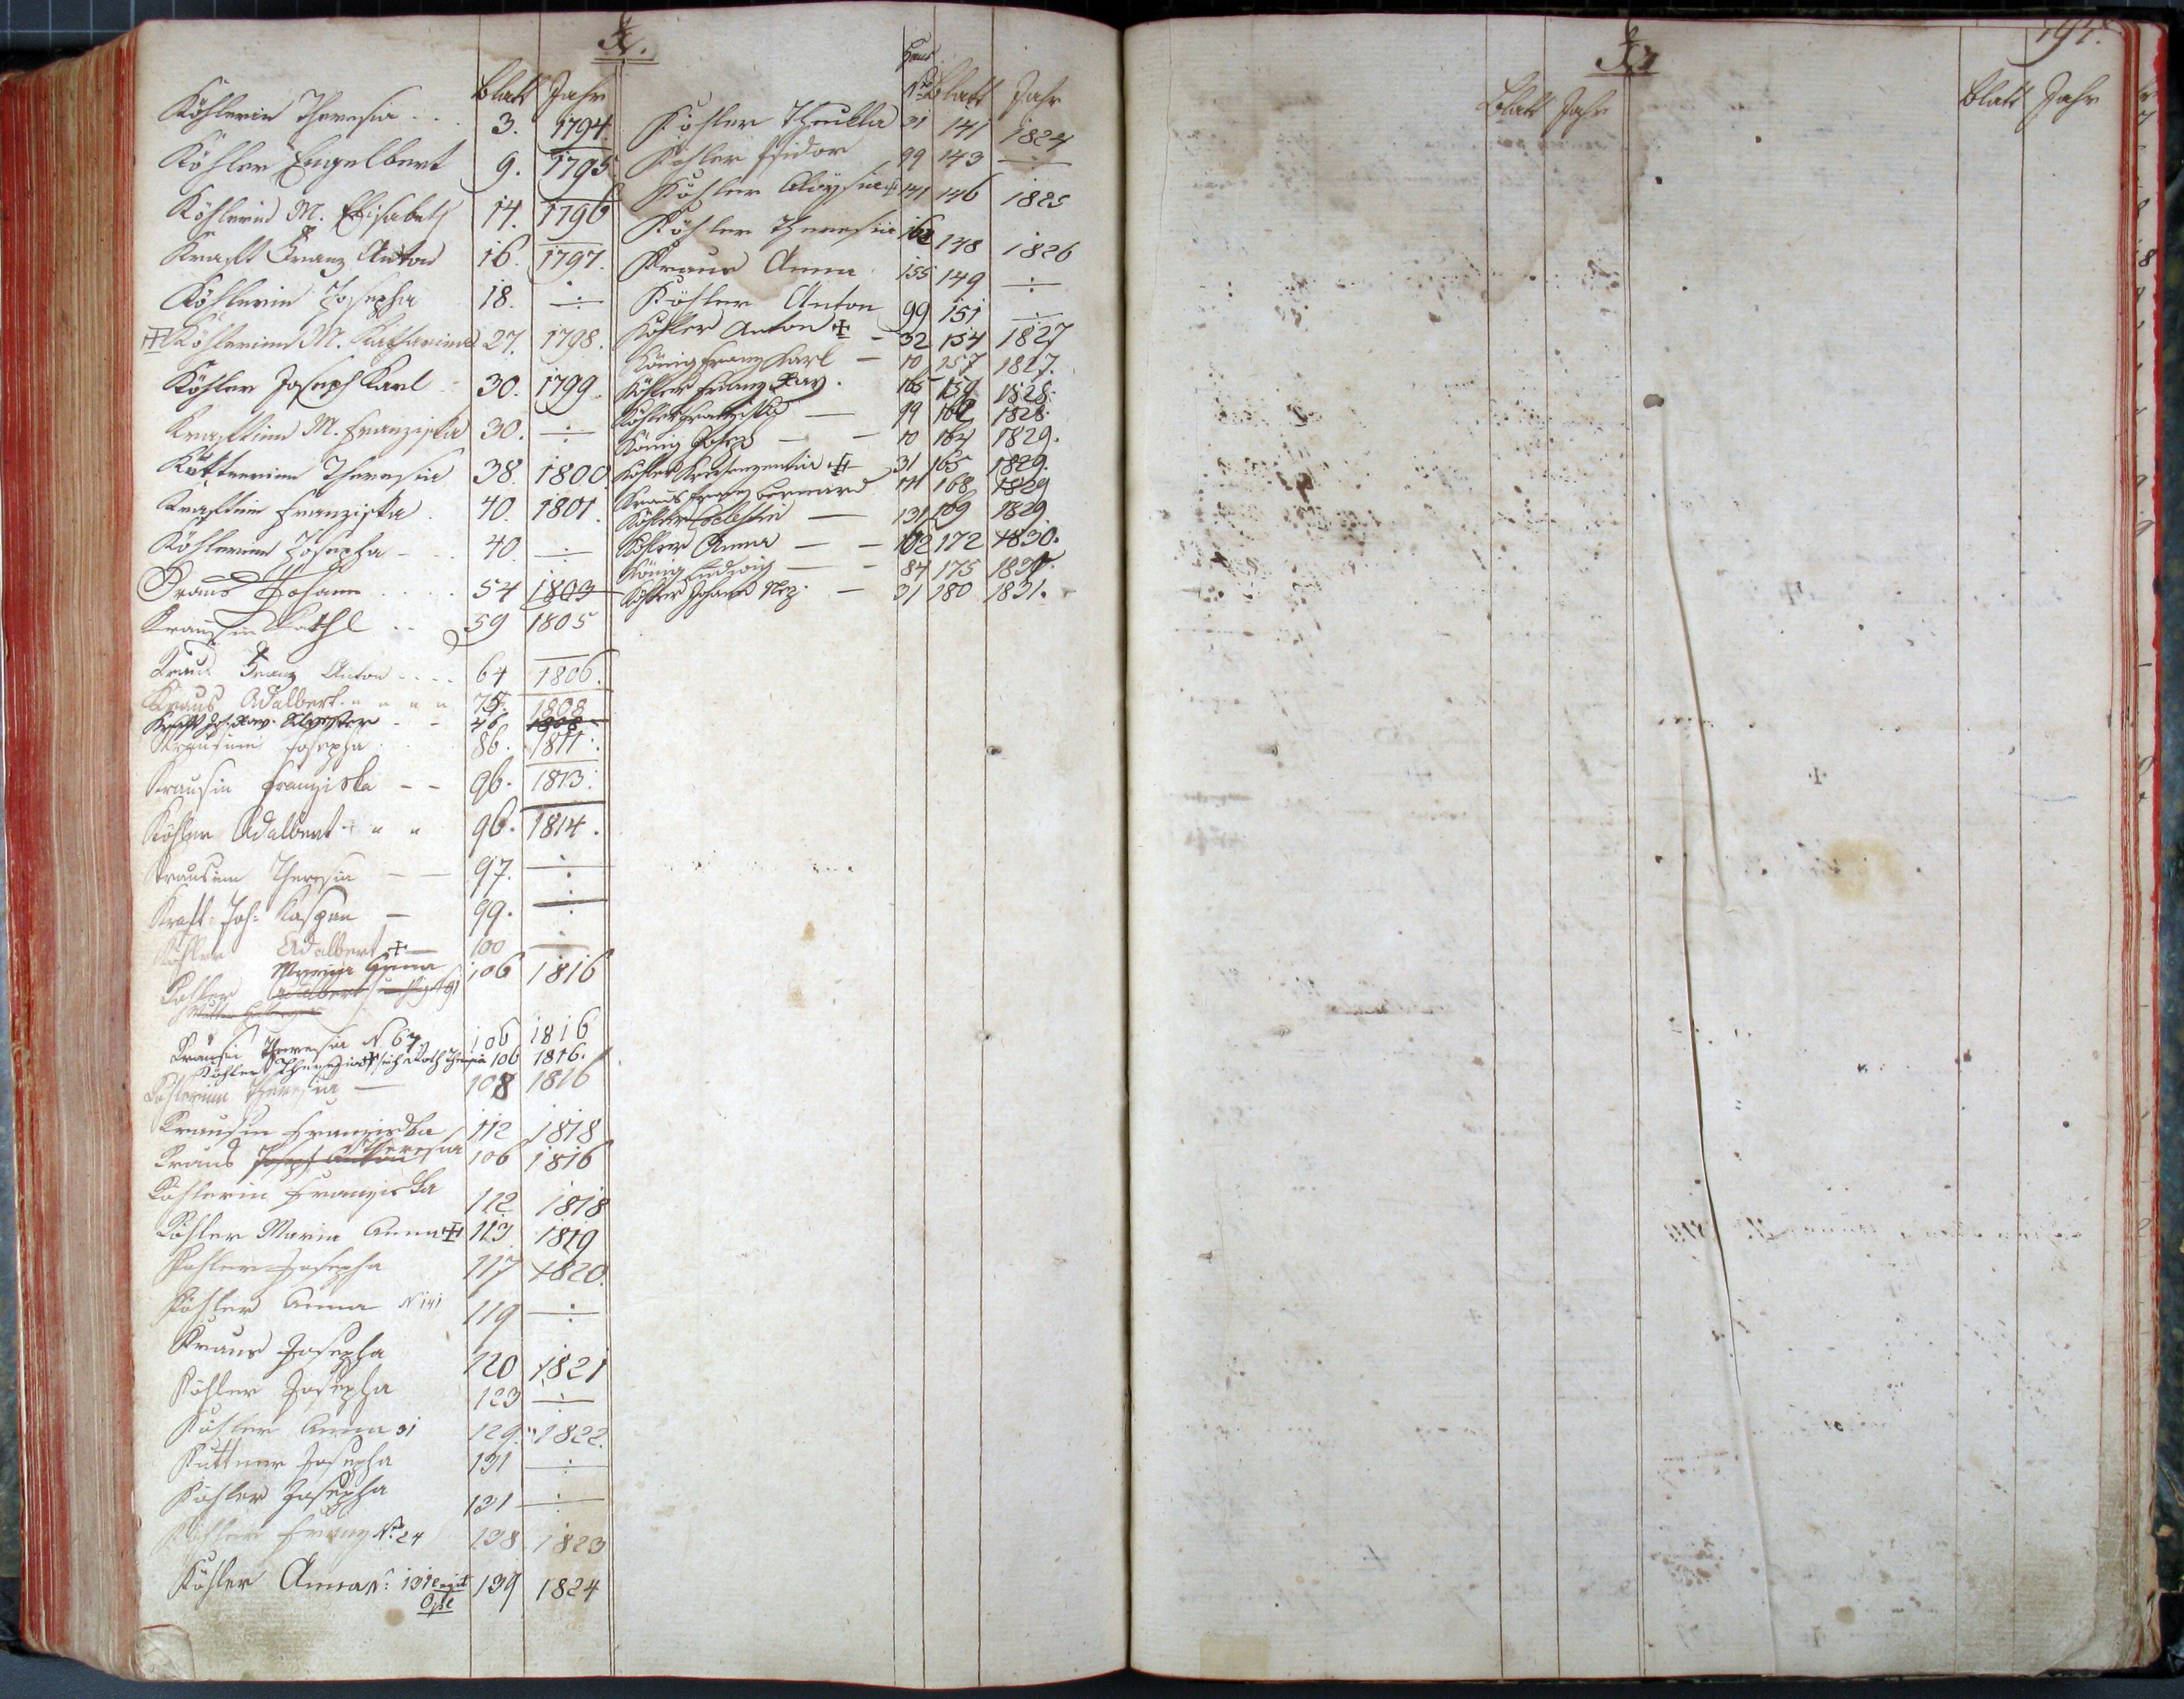 K.
Blatt Jahr
Köhlerin Theresia . . . 3. 1794.
Köhler Engelbert 9. 1795
Köhlerin M. Elisabeth 14. 1796
Kraft Franz Anton 16. 1797.
Köhlerin Josepha 18. ÷
Köhlerinn M. Katharina 27. 1798.
Köhler Joseph Karl 30. 1799.
Kraftinn M. Franziska 30. ÷
Küttnerinn Theresia 38. 1800
Kraftinn Franziska . 40. 1801.
Köhlerinn Josepha - . . 40 ÷
Kraus Johann . . . . 54 1803
Krausin Kathl . . 59 1805
Kraus Franz Anton . . . . 64 1806.
Kraus Adalbert 1808
46.
Krausinn Josepha 86. 1811.
Krausin Franziska - - 96. 1813.
Köhler Adalbert 96. 1814.
Krausinn Theresia — — 97. ÷
Kraft Joh: Kaspar — 99. ÷
Köhler Adalbert — 100 ÷
Köhler Maria Anna 106 1816
Krausin Theresia N 67. 106 1816
Köhler Theresia 106 1816.
Köhlerinn Theresia — 108 1816
Krausin Franziska 112 1818
Kraus Theresia 106 1816
Köhlerin Franziska 112 1818
Köhler Maria Anna 113 1819
Köhler Josepha 117 1820.
Köhler Anna N 141 119 ÷
Kraus Josepha 120 1821
Köhler Josepha 123 ÷
Köhler Anna 31 129. 1822.
Küttner Josepha 131 ÷
Köhler Josepha 131 ÷
Köhler Franz No. 24 138 1823
Köhler Anna N: 131 139 1824
Haus
No Blatt Jahr
Köhler Thecla 31 141 1824
Köhler Isidor 99 143 ÷
Köhler Aloysia 141 146 1825
Köhler Theresia 162 148 1826
Kraus Anna 155 149 ÷
Köhler Anton 99 151 ÷
Köhler Anton - 32 154 1827
König Franz Karl — 10 157 1827.
Köhler Franz Xav. 165 159 1828.
Köhler Franziska — 99 162 1828.
König Josef — — 10 164 1829.
Köhler Kreszenzia 31 165 1829.
Kraus Franz Bernard 168 1829
Köhler Cölestin — 131 169 1829
Köhler Anna — — 102 172 1830.
König Ludwig — - 84 175
Köhler Johann Nep. — 31 180 1831.
K.
191.
Blatt Jahr
Blatt Jahr